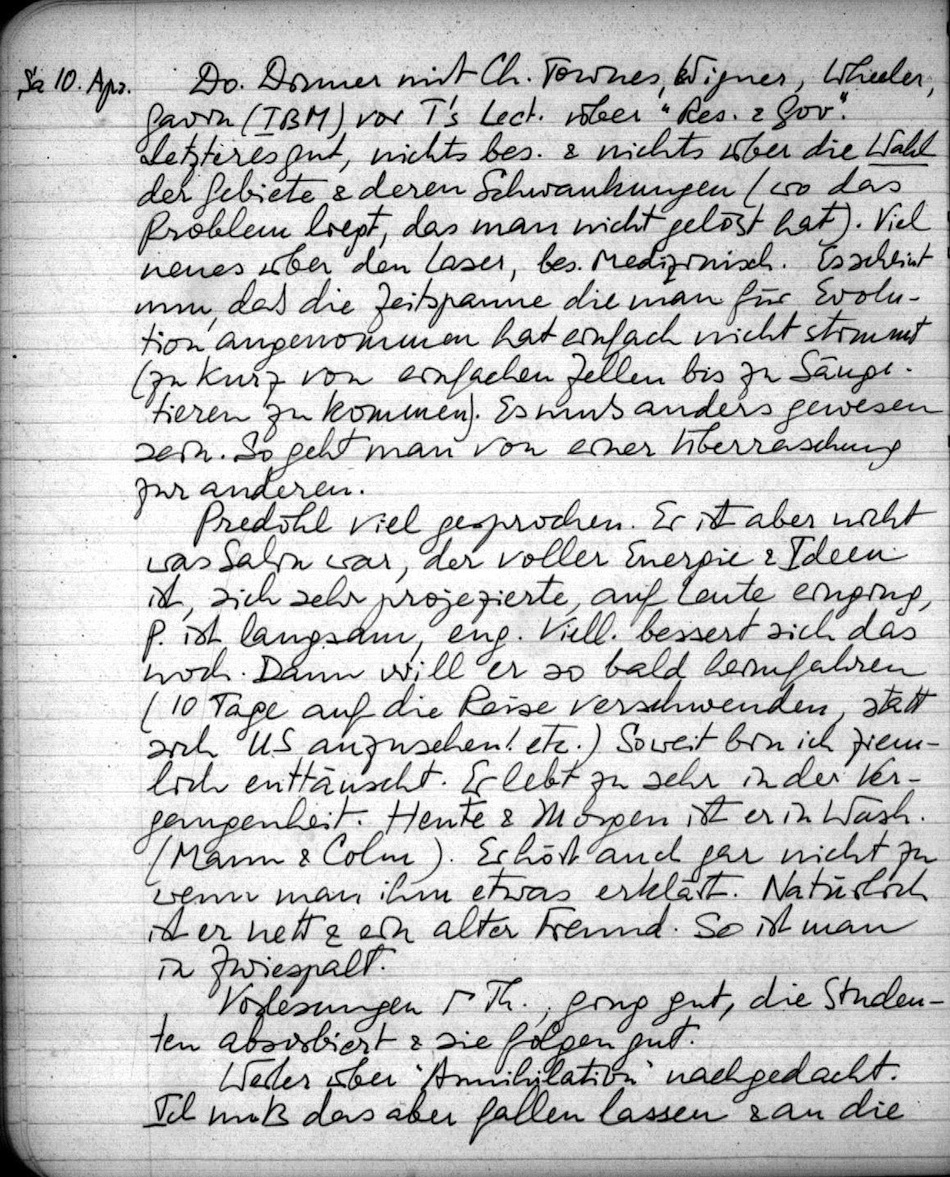 Sa 10. Apr. Do. Dinner mit Ch. Townes, Wigner, Wheeler,
Gavin (IBM) vor T's Lect. über "Res. & Gov".
Letzteres gut, nichts bes. & nichts über die Wahl
der Gebiete & deren Schwankungen (wo das
Problem liegt, das man nicht gelöst hat). Viel
neues über den Laser, bes. Medizinisch. Es scheint
nun, daß die Zeitspanne die man für Evolu-
tion angenommen hat einfach nicht stimmt
(zu kurz von einfachen Zellen bis zu Säuge-
tieren zu kommen). Es muß anders gewesen
sein. So geht man von einer Überraschung
zur anderen.
Predöhl viel gesprochen. Er ist aber nicht
was Salin war, der voller Energie & Ideen
ist, sich sehr projezierte, auf Leute einging,
P. ist langsam, eng. Viell. bessert sich das
noch. Dann will er so bald heimfahren
(10 Tage auf die Reise verschwenden, statt
sich US anzusehen! etc.) Soweit bin ich ziem-
lich enttäuscht. Er lebt zu sehr in der Ver-
gangenheit. Heute & Morgen ist er in Wash.
(Mann & Colm). Er hört auch gar nicht zu
wenn man ihm etwas erklärt. Natürlich
ist er nett & ein alter Freund. So ist man
in Zwiespalt.
Vorlesungen Γ Th., ging gut, die Studen-
ten absorbiert & sie folgen gut.
Weiter über 'Annihilation' nachgedacht.
Ich muß das aber fallen lassen & an die